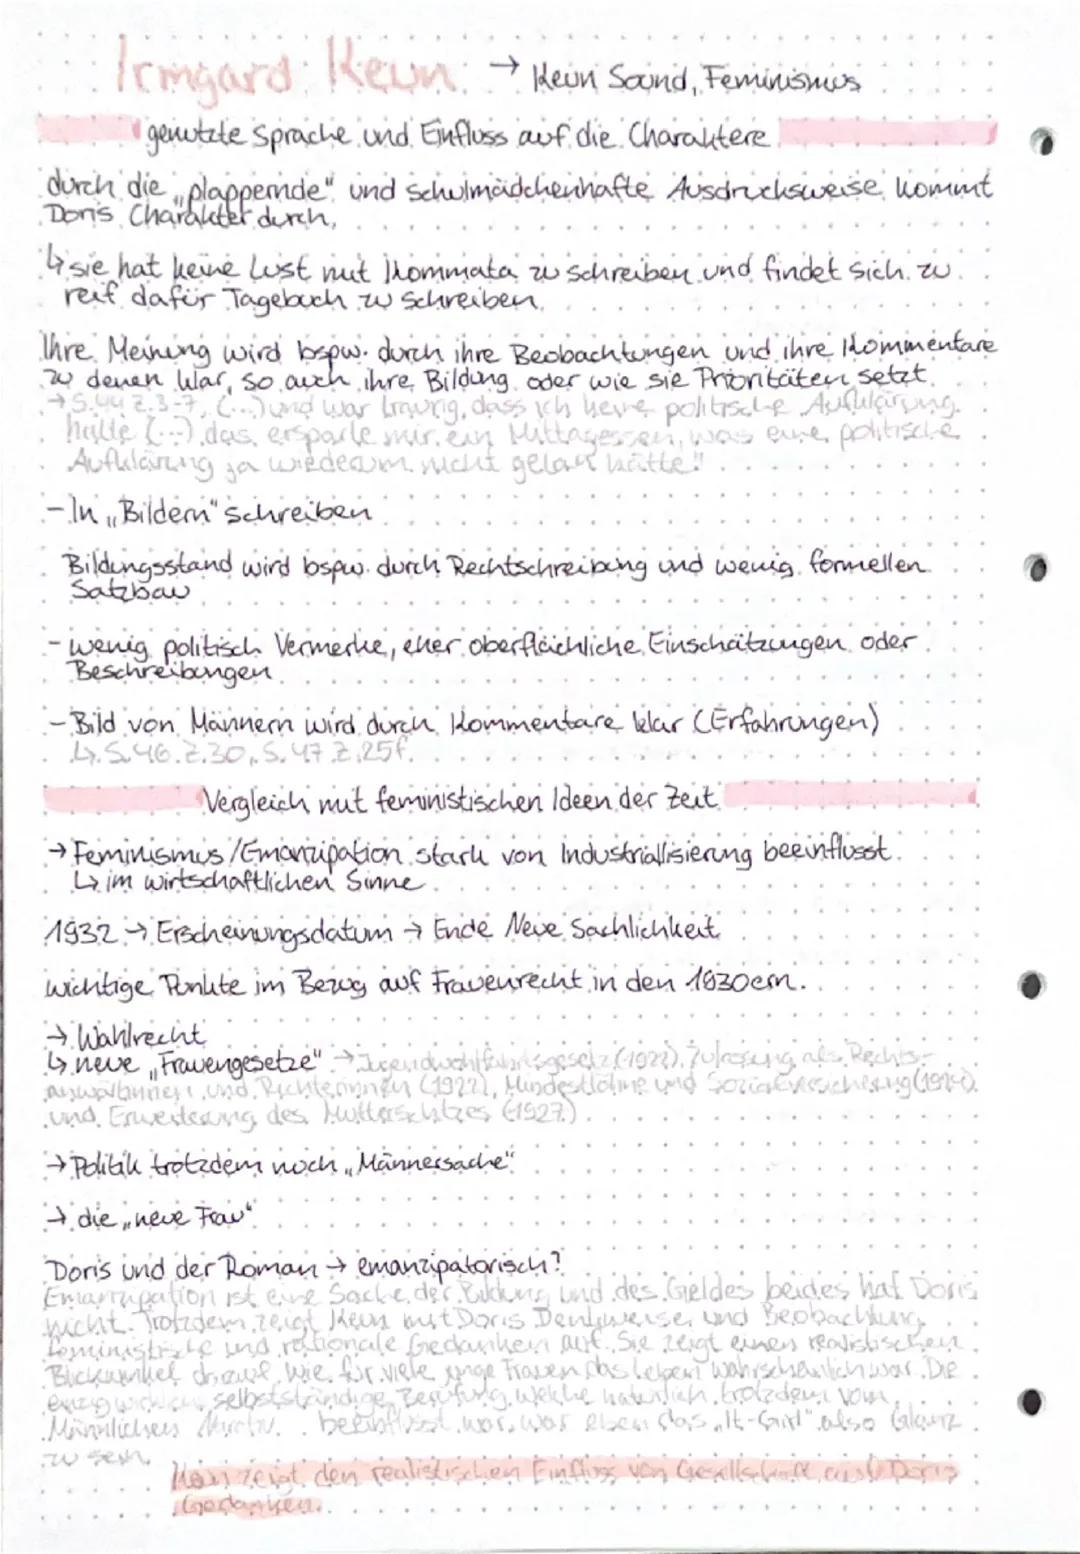 Irmgard Keun → Keun Sound, Feminismus
genutzte Sprache und Einfluss auf die Charaktere
durch die „plappernde" und schulmädchenhafte Ausdrucksweise kommt
Doris Charakter durch,
↳ sie hat keine Lust mit Kommata zu schreiben und findet sich zu
reif dafür Tagebuch zu schreiben
Ihre Meinung wird bspw. durch ihre Beobachtungen und ihre Kommentare
zu denen klar, so auch ihre Bildung oder wie sie Prioritäten setzt
→ S.44 Z.3-7, (...) und war traurig, dass ich keine politische Aufklärung
hatte (...) das ersparte mir ein Mittagessen, was eine politische
Aufklärung ja wiederum nicht gelohnt hätte"
- In „Bildern" schreiben
Bildungsstand wird bspw. durch Rechtschreibung und wenig formellen
Satzbau
- wenig politisch Vermerke, eher oberflächliche Einschätzungen oder
Beschreibungen
- Bild von Männern wird durch Kommentare klar (Erfahrungen)
↳ S.46 Z.30, S.47 Z.25f.
Vergleich mit feministischen Ideen der Zeit
→ Feminismus/Emanzipation stark von Industriallisierung beeinflusst
↳ im wirtschaftlichen Sinne
1932 → Erscheinungsdatum → Ende Neue Sachlichkeit
wichtige Punkte im Bezug auf Frauenrecht in den 1930ern.
→ Wahlrecht
↳ neue „Frauengesetze" → Jugendwohlfahrtsgesetz (1922), Zulassung als Rechts-
anwältinnen und Richterinnen (1922), Mindestlöhne und Sozialversicherung
und Erweiterung des Mutterschutzes (1927)
→ Politik trotzdem noch „Männersache"
→ die „neue Frau"
Doris und der Roman → emanzipatorisch?
Emanzipation ist eine Sache der Bildung und des Geldes beides hat Doris
nicht. Trotzdem zeigt Keun mit Doris Denkweise und Beobachtung
feministische und rationale Gedanken auf. Sie zeigt einen realistischen
Blickwinkel drauf, wie für viele junge Frauen das Leben wahrscheinlich war. Die
selbstständige welche natürlich trotzdem vom
Männlichen beeinflusst war, war eben das „It-Girl" also Glanz
zu sein.
Keun zeigt den realistischen Einfluss von Gesellschaft auf Doris
Gedanken.